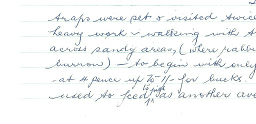 traps were set & visited twice
heavy work – walking with
across sandy areas, (where rabbits
burrow) – to begin with only
at 4 pence up to 1/- for bucks
used to feed was another